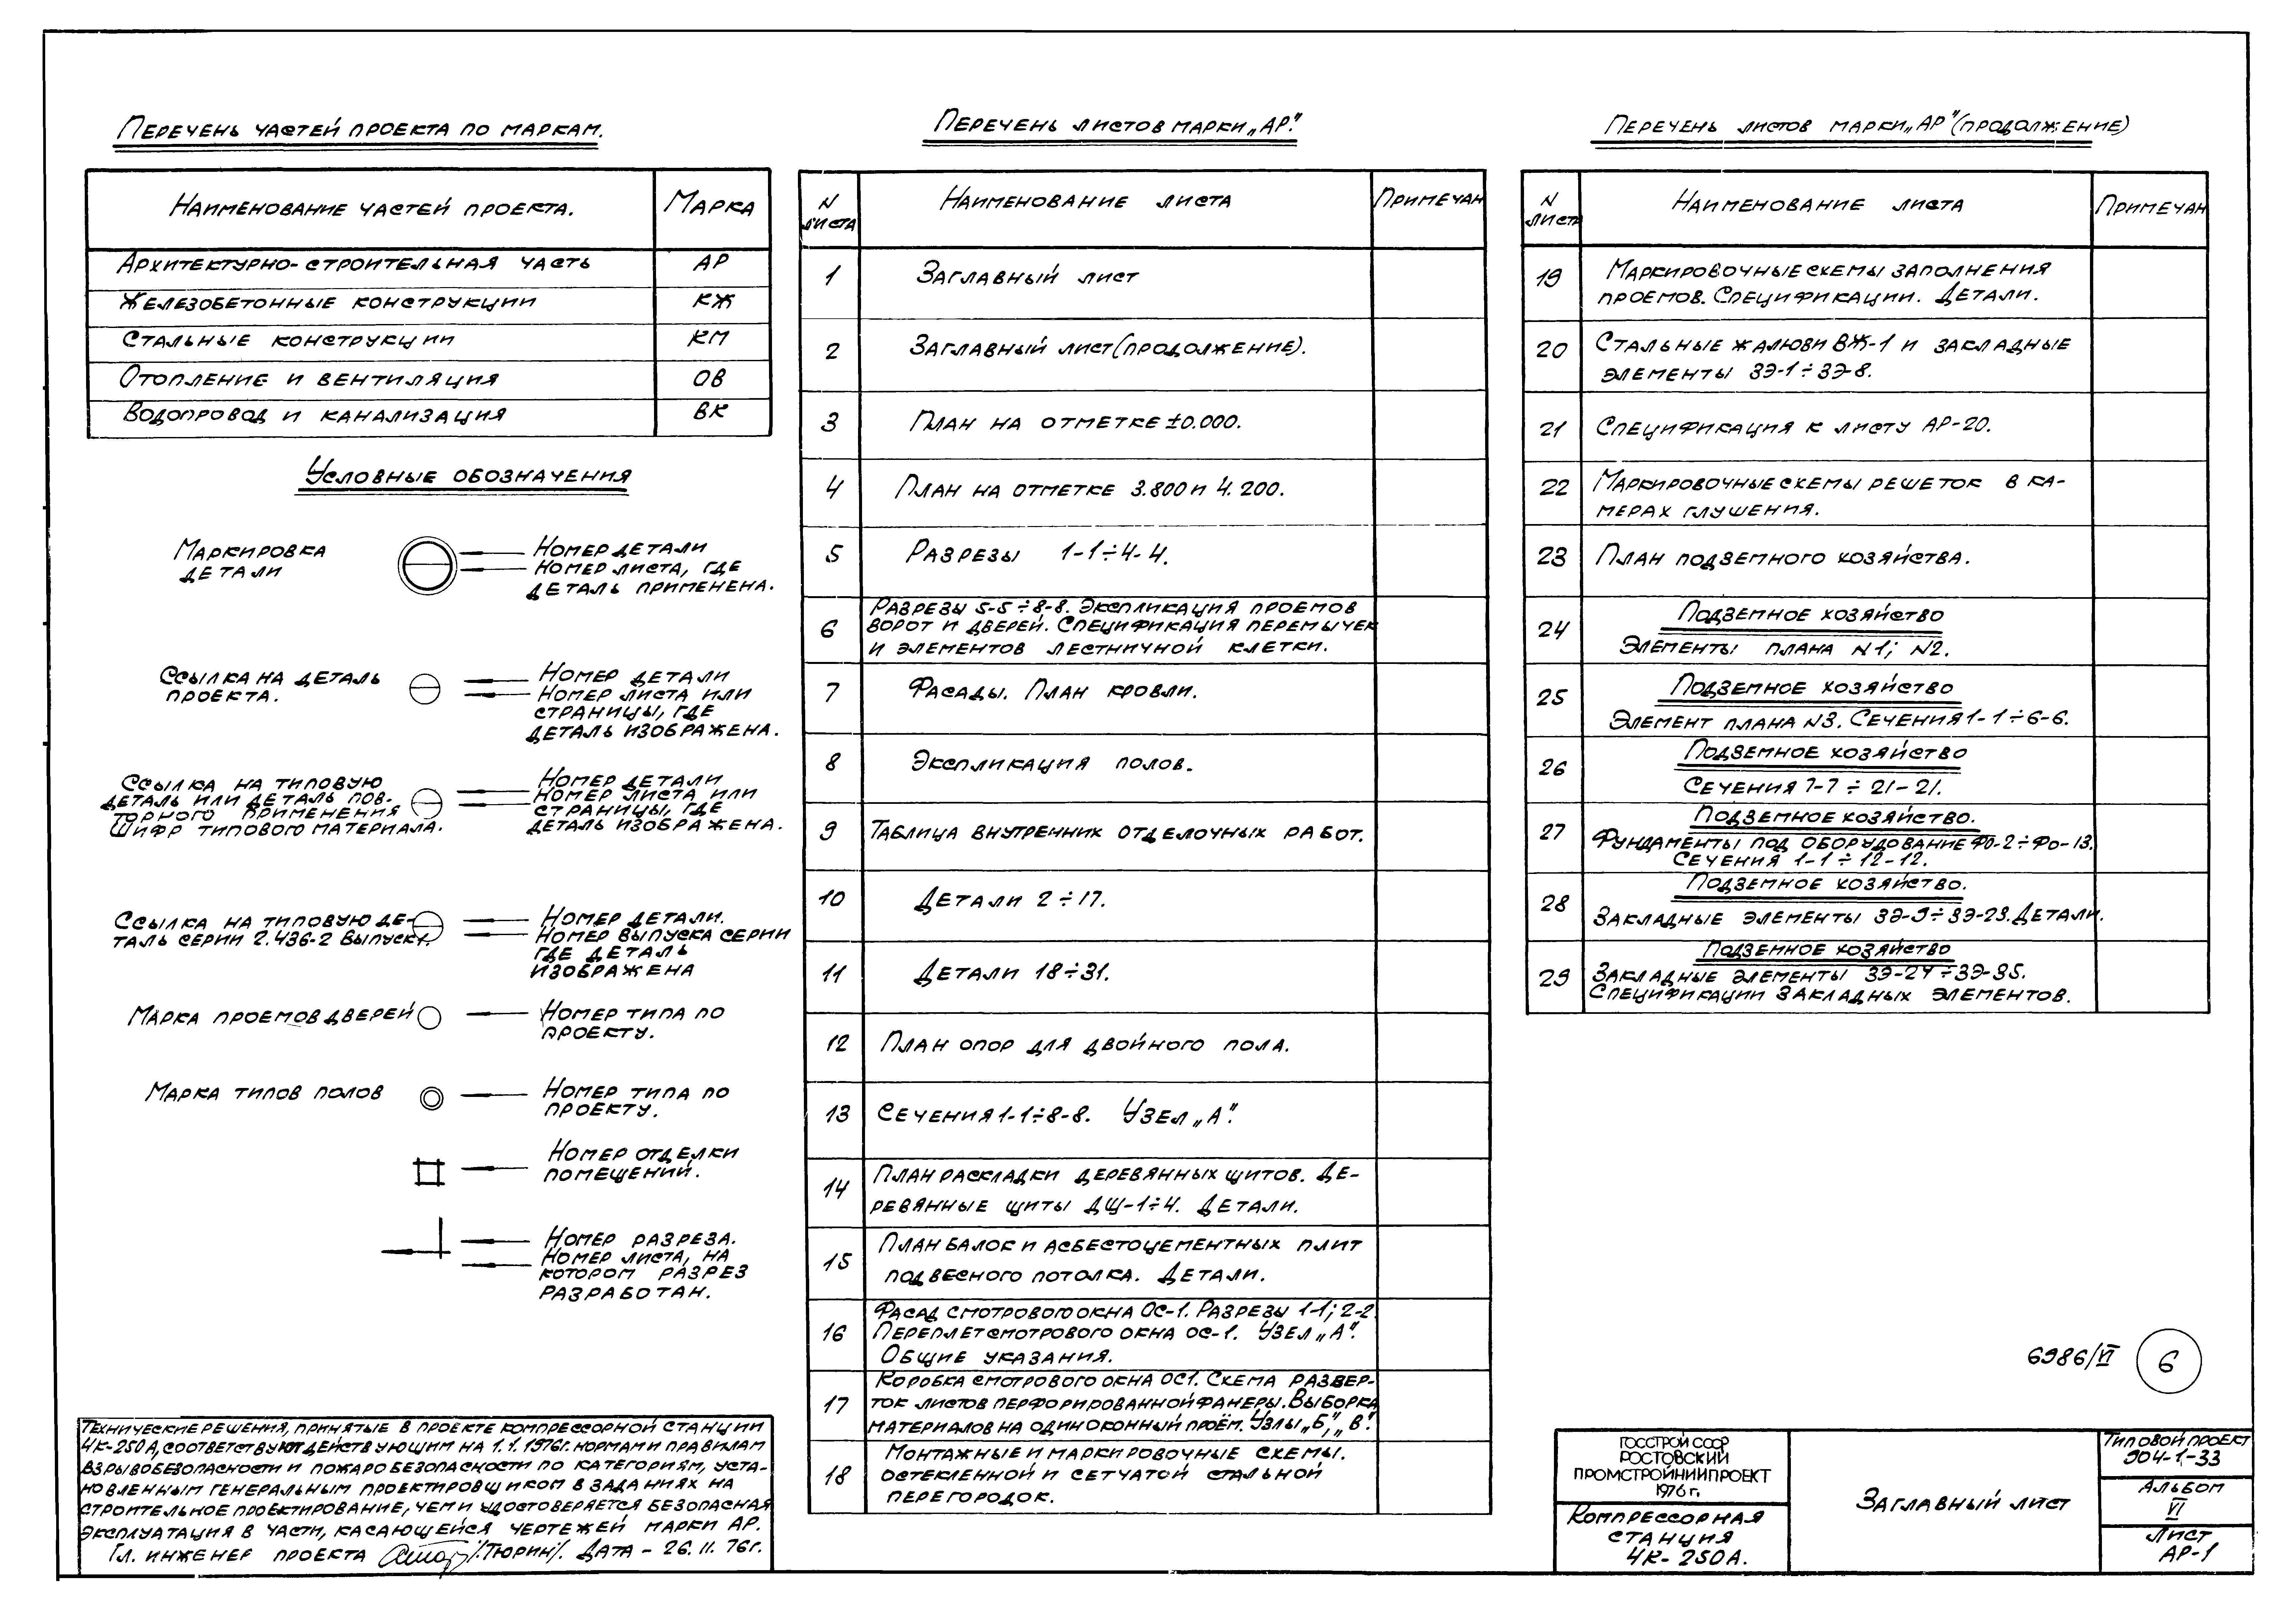 Перечень частей проекта по маркам.
Наименование частей проекта. Марка
Архитектурно-строительная часть АР
Железобетонные конструкции КЖ
Стальные конструкции КМ
Отопление и вентиляция ОВ
Водопровод и канализация ВК
Условные обозначения
Маркировка
детали
Номер детали
Номер листа, где
деталь применена.
Ссылка на деталь
проекта.
Номер детали
Номер листа или
страницы, где
деталь изображена.
Ссылка на типовую
деталь или деталь пов-
торного применения
Шифр типового материала.
Номер детали
Номер листа или
страницы, где
деталь изображена.
Ссылка на типовую де-
таль серии 2.436-2 Выпуск 1.
Номер детали.
Номер выпуска серии
где деталь
изображена
Марка проемов дверей
Номер типа по
проекту.
Марка типов полов
Номер типа по
проекту.
Номер отделки
помещений.
Номер разреза.
Номер листа, на
котором разрез
разработан.
Технические решения, принятые в проекте компрессорной станции
4К-250А, соответствуют действующим на 1.1.1976г. нормам и правилам
взрывобезопасности и пожаробезопасности по категориям, уста-
новленным генеральным проектировщиком в заданиях на
строительное проектирование, чем и удостоверяется безопасная
эксплуатация в части, касающейся чертежей марки АР.
Гл. инженер проекта /Тюрин/. Дата - 26.11.76г.
Перечень листов марки „АР".
N
листа
Наименование листа
Примечан
1 Заглавный лист
2 Заглавный лист (продолжение).
3 План на отметке ±0.000.
4 План на отметке 3.800 и 4.200.
5 Разрезы 1-1÷4-4.
6 Разрезы 5-5÷8-8. Экспликация проемов
ворот и дверей. Спецификация перемычек
и элементов лестничной клетки.
7 Фасады. План кровли.
8 Экспликация полов.
9 Таблица внутренник отделочных работ.
10 Детали 2÷17.
11 Детали 18÷31.
12 План опор для двойного пола.
13 Сечения 1-1÷8-8. Узел „А".
14 План раскладки деревянных щитов. Де-
ревянные щиты ДЩ-1÷4. Детали.
15 План балок и асбестоцементных плит
подвесного потолка. Детали.
16 Фасад смотрового окна ОС-1. Разрезы 1-1; 2-2
Переплет смотрового окна ОС-1. Узел „А".
Общие указания.
17 Коробка смотрового окна ОС1. Схема развер-
ток листов перфорированной фанеры. Выборка
материалов на один оконный проём. Узлы „Б", „В".
18 Монтажные и маркировочные схемы.
остекленной и сетчатой стальной
перегородок.
Перечень листов марки „АР" (продолжение)
N
листа
Наименование листа
Примечан
19 Маркировочные схемы заполнения
проемов. Спецификации. Детали.
20 Стальные жалюзи ВЖ-1 и закладные
элементы ЗЭ-1÷ЗЭ-8.
21 Спецификация к листу АР-20.
22 Маркировочные схемы решеток в ка-
мерах глушения.
23 План подземного хозяйства.
24 Подземное хозяйство
Элементы плана N1; N2.
25 Подземное хозяйство
Элемент плана N3. Сечения 1-1÷6-6.
26 Подземное хозяйство
Сечения 7-7÷21-21.
27 Подземное хозяйство.
Фундаменты под оборудование Фо-2÷Фо-13.
Сечения 1-1÷12-12.
28 Подземное хозяйство.
Закладные элементы ЗЭ-9÷ЗЭ-23. Детали.
29 Подземное хозяйство
Закладные элементы ЗЭ-24÷ЗЭ-35.
Спецификации закладных элементов.
6986/VI 6
Госстрой СССР
Ростовский
Промстройниипроект
1976г.
Компрессорная
станция
4К-250А.
Заглавный лист
Типовой проект
904-1-33
Альбом
VI
Лист
АР-1